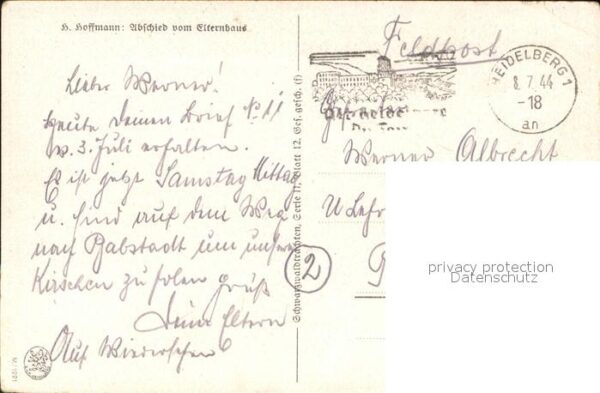 H. Hoffmann: Abschied vom Elternhaus
Lieber Werner!
heute deinen Brief No 11
v. 3. Juli erhalten.
Es ist jetzt Samstag Mittag
u. sind auf dem Weg
nach Babstadt um unsere
Kirschen zu holen Gruß
Deine Eltern
Auf Wiedersehen
Schwarzwaldtrachten, Serie II, Blatt 12. Ges. gesch. (f)
Feldpost
HEIDELBERG 1
8.7.44
-18
an
Werner Albrecht
2
privacy protection
Datenschutz